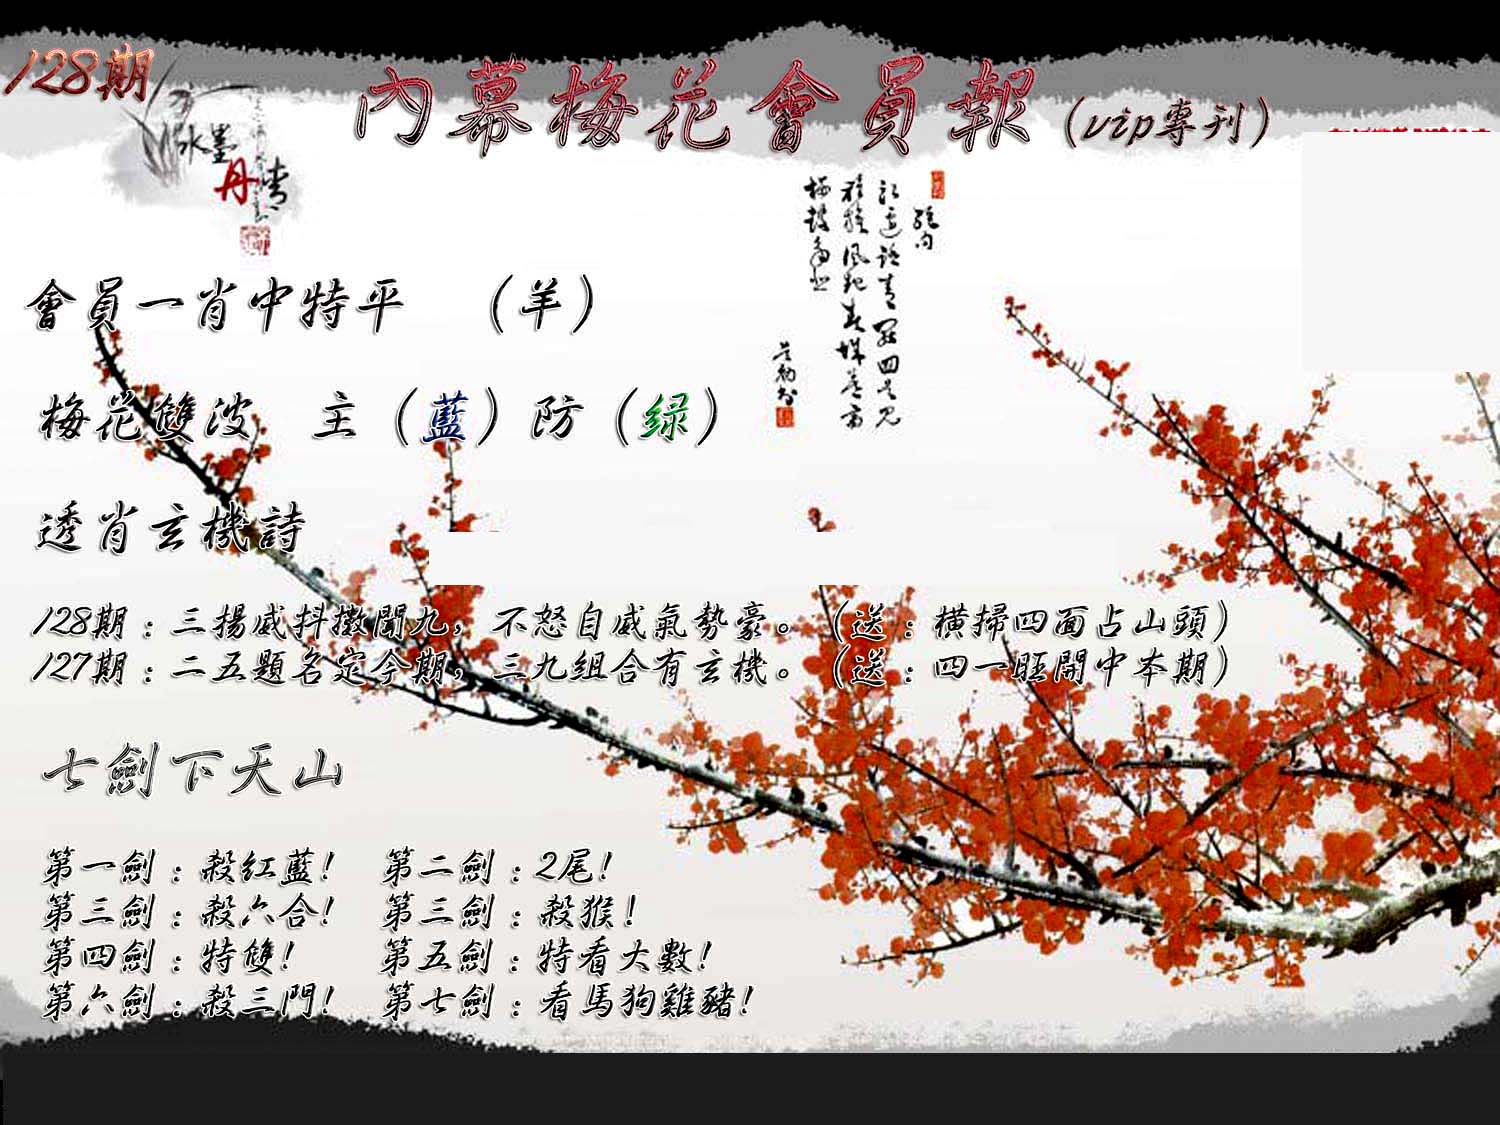 128期
內幕梅花會員報（vip專刊）
水墨
丹青
會員一肖中特平 （羊）
梅花雙波 主（藍）防（绿）
透肖玄機詩
128期：三揚威抖擻聞九，不怒自威氣勢豪。（送：橫掃四面占山頭）
127期：二五題名定今期，三九組合有玄機。（送：四一旺開中本期）
七劍下天山
第一劍：殺红藍！ 第二劍：2尾！
第三劍：殺六合！ 第三劍：殺猴！
第四劍：特雙！ 第五劍：特看大數！
第六劍：殺三門！ 第七劍：看馬狗雞豬！